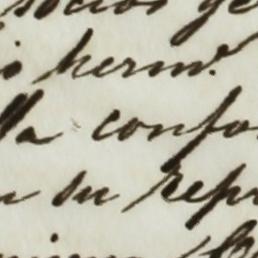 socios ge
o herm.
lla confor
n su repr